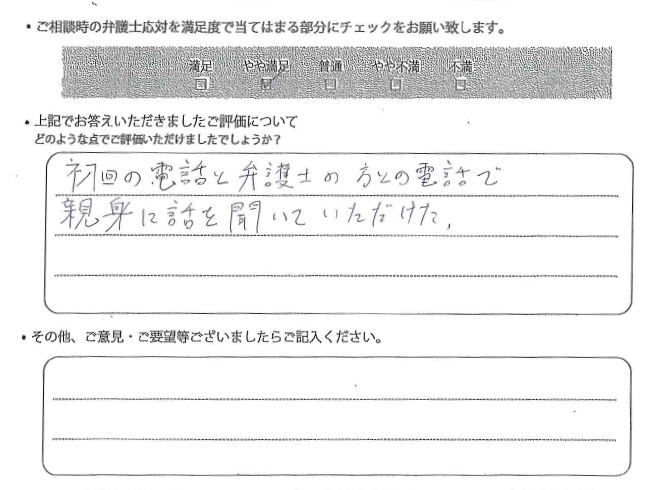 ・ご相談時の弁護士応対を満足度で当てはまる部分にチェックをお願い致します。
満足 やや満足 普通 やや不満 不満
□ ☑ □ □ □
・上記でお答えいただきましたご評価について
どのような点でご評価いただけましたでしょうか？
初回の電話と弁護士の方との電話で
親身に話を聞いていただけた。
・その他、ご意見・ご要望等ございましたらご記入ください。